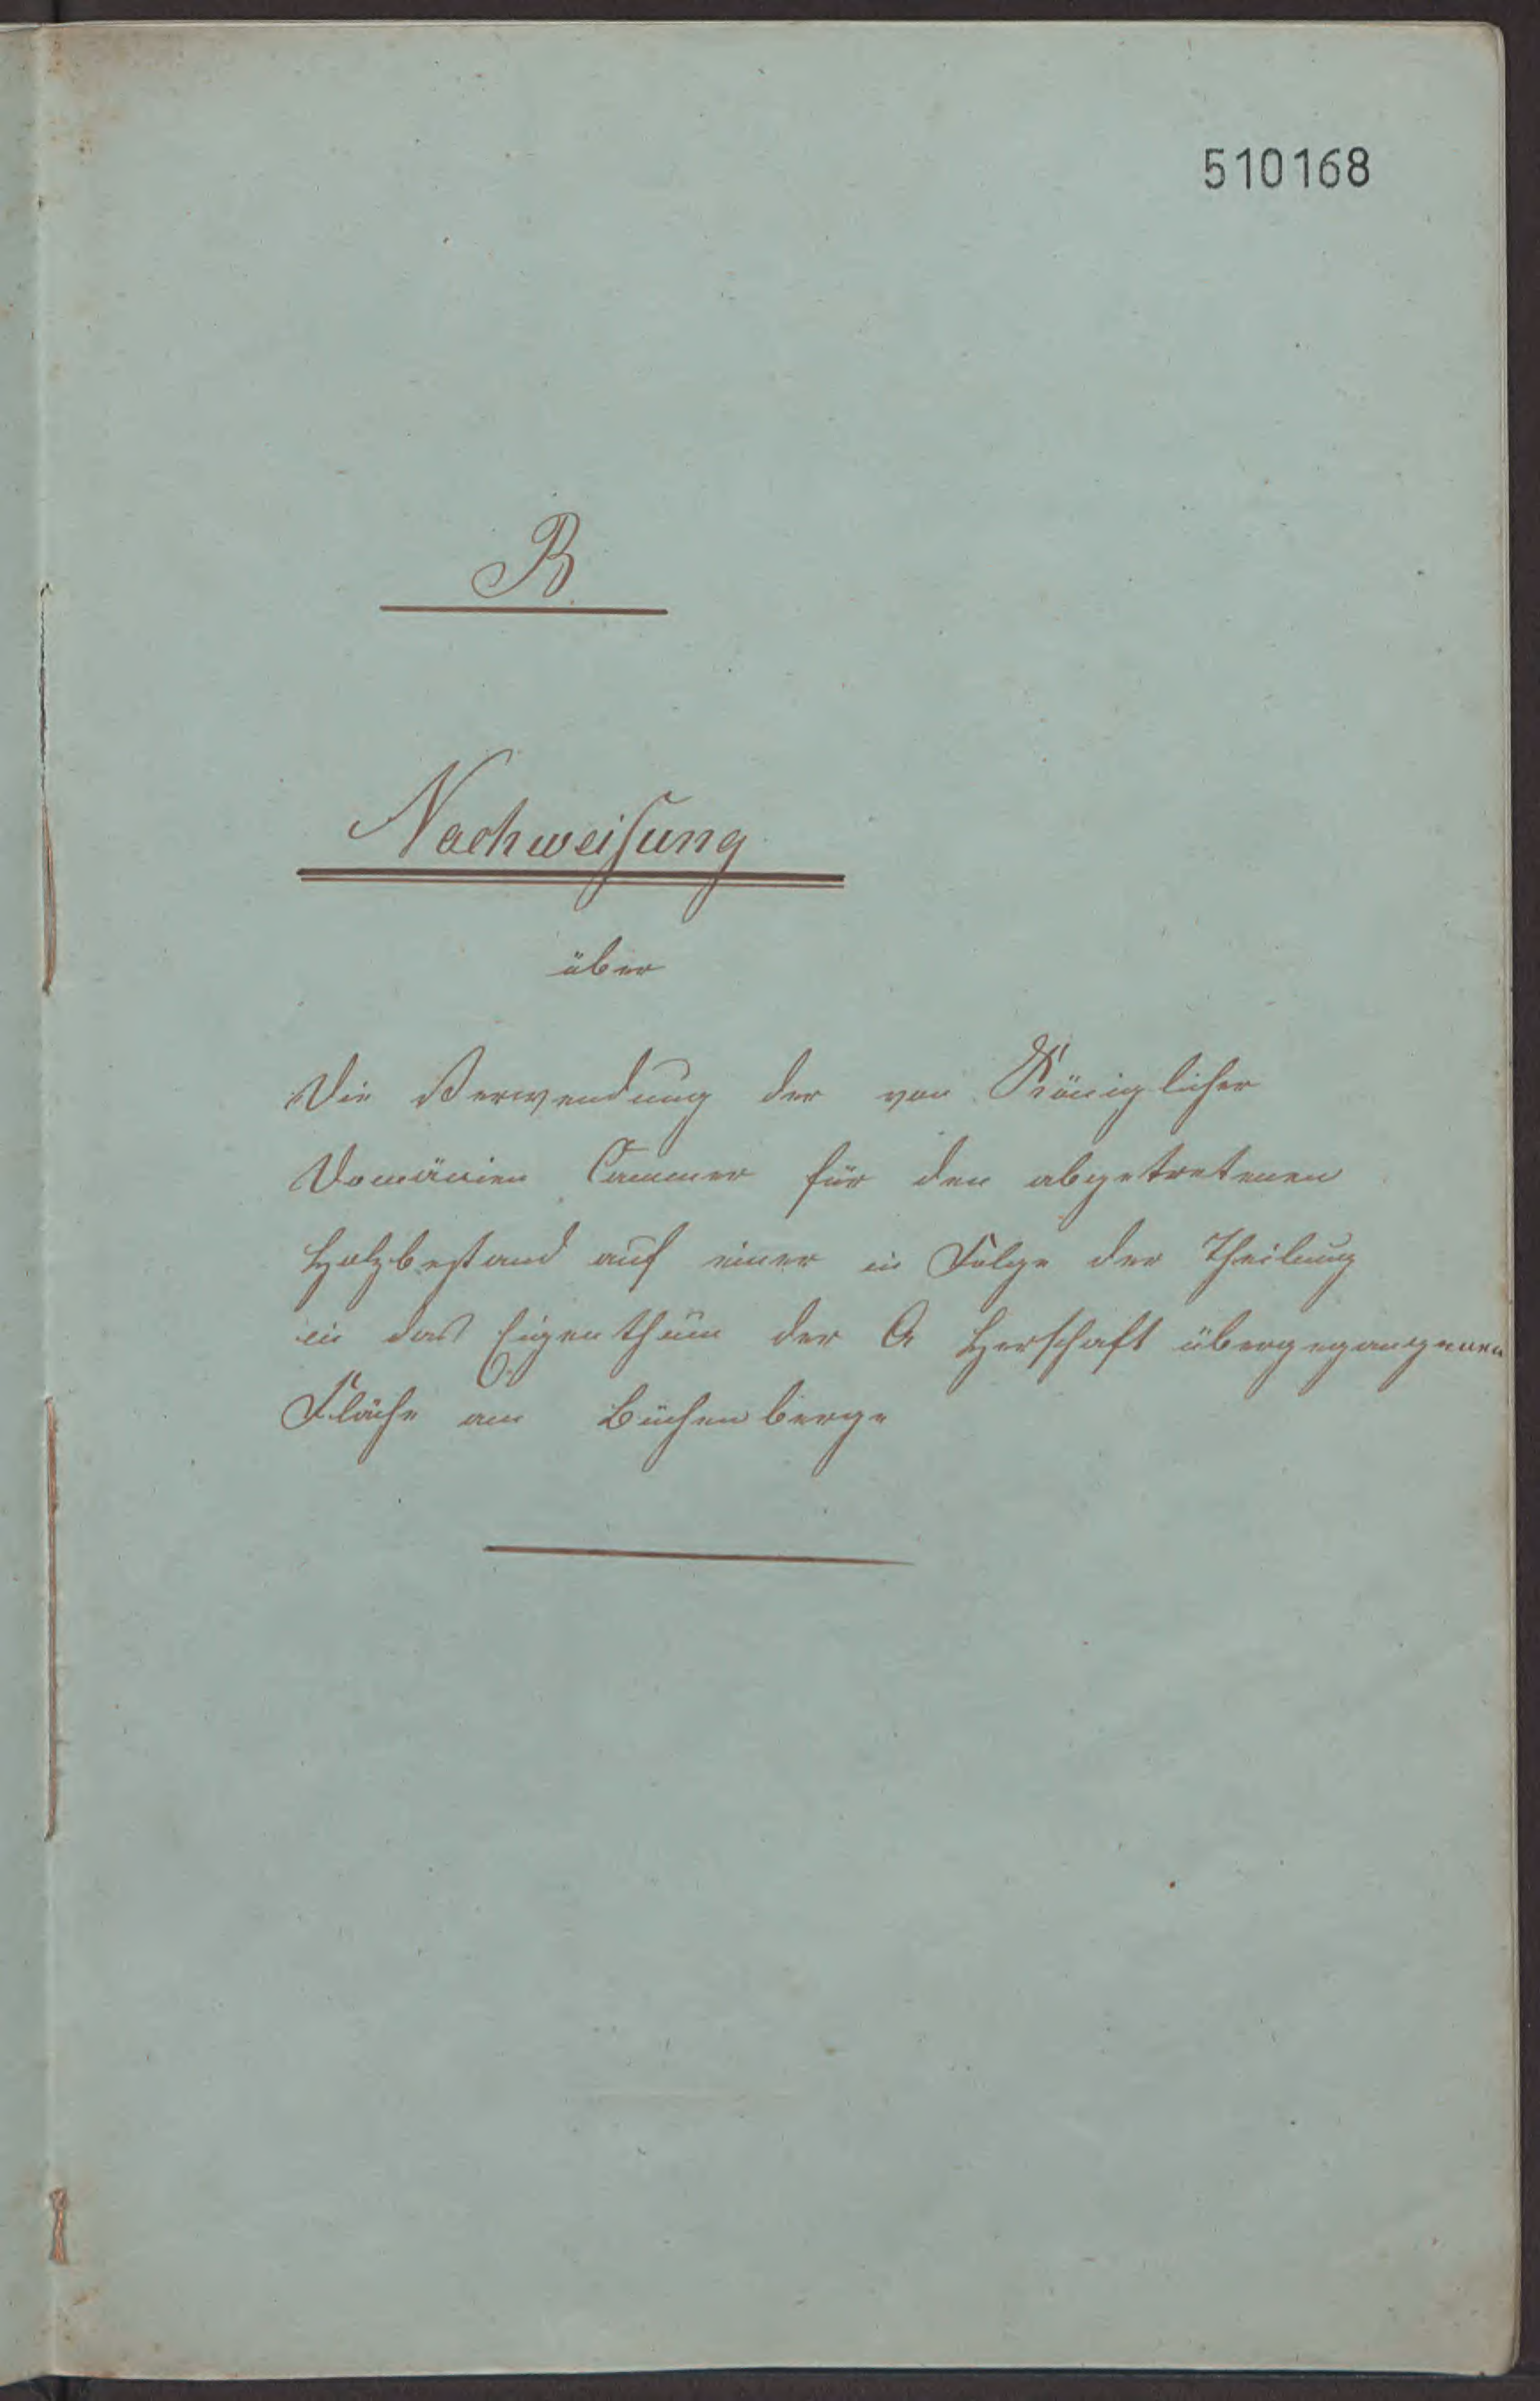 510168
B.
Nachweisung
über
Die Verwendung der von Königlicher
Domänen Cammer für den abgetretenen
Holzbestand auf einer in Folge der Theilung
in das Eigenthum der G Herschaft übergegangenen
Fläche am Büchenberge